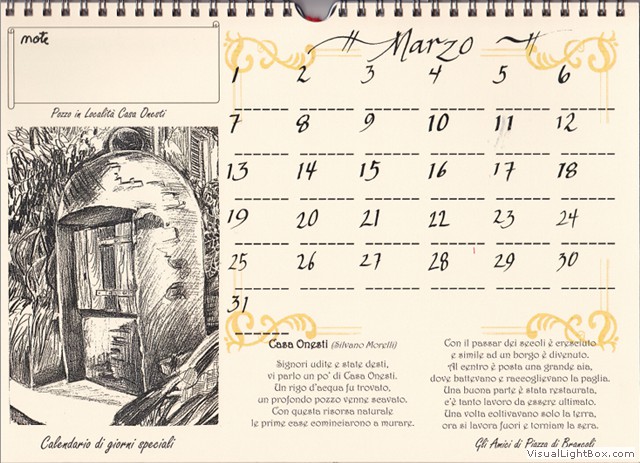 note
Marzo
Pozzo in Località Casa Onesti
1 2 3 4 5 6
7 8 9 10 11 12
13 14 15 16 17 18
19 20 21 22 23 24
25 26 27 28 29 30
31
Casa Onesti (Silvano Morelli)
Signori udite e state desti,
vi parlo un po' di Casa Onesti.
Un rigo d'acqua fu trovato,
un profondo pozzo venne scavato.
Con questa risorsa naturale
le prime case cominciarono a murare.
Con il passar dei secoli è cresciuto
e simile ad un borgo è divenuto.
Al centro è posta una grande aia,
dove battevano e raccoglievano la paglia.
Una buona parte è stata restaurata,
c'è tanto lavoro da essere ultimato.
Una volta coltivavano solo la terra,
ora si lavora fuori e torniam la sera.
Calendario di giorni speciali
Gli Amici di Piazza di Brancoli
VisualLightBox.com